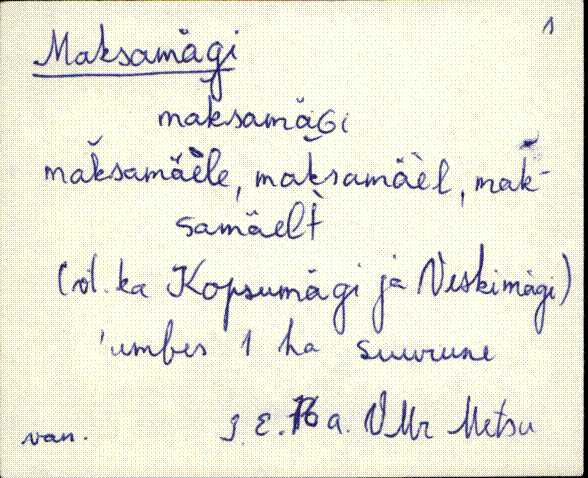 1
Maksamägi
maksamäGi
mak̆samäèle, mak̆samäèl, mak̆-
samäelt̀
(vt. ka Kopsumägi ja Veskimägi)
'umbes 1 ha suurune
van. J. E. 76 a. VMr Metsu